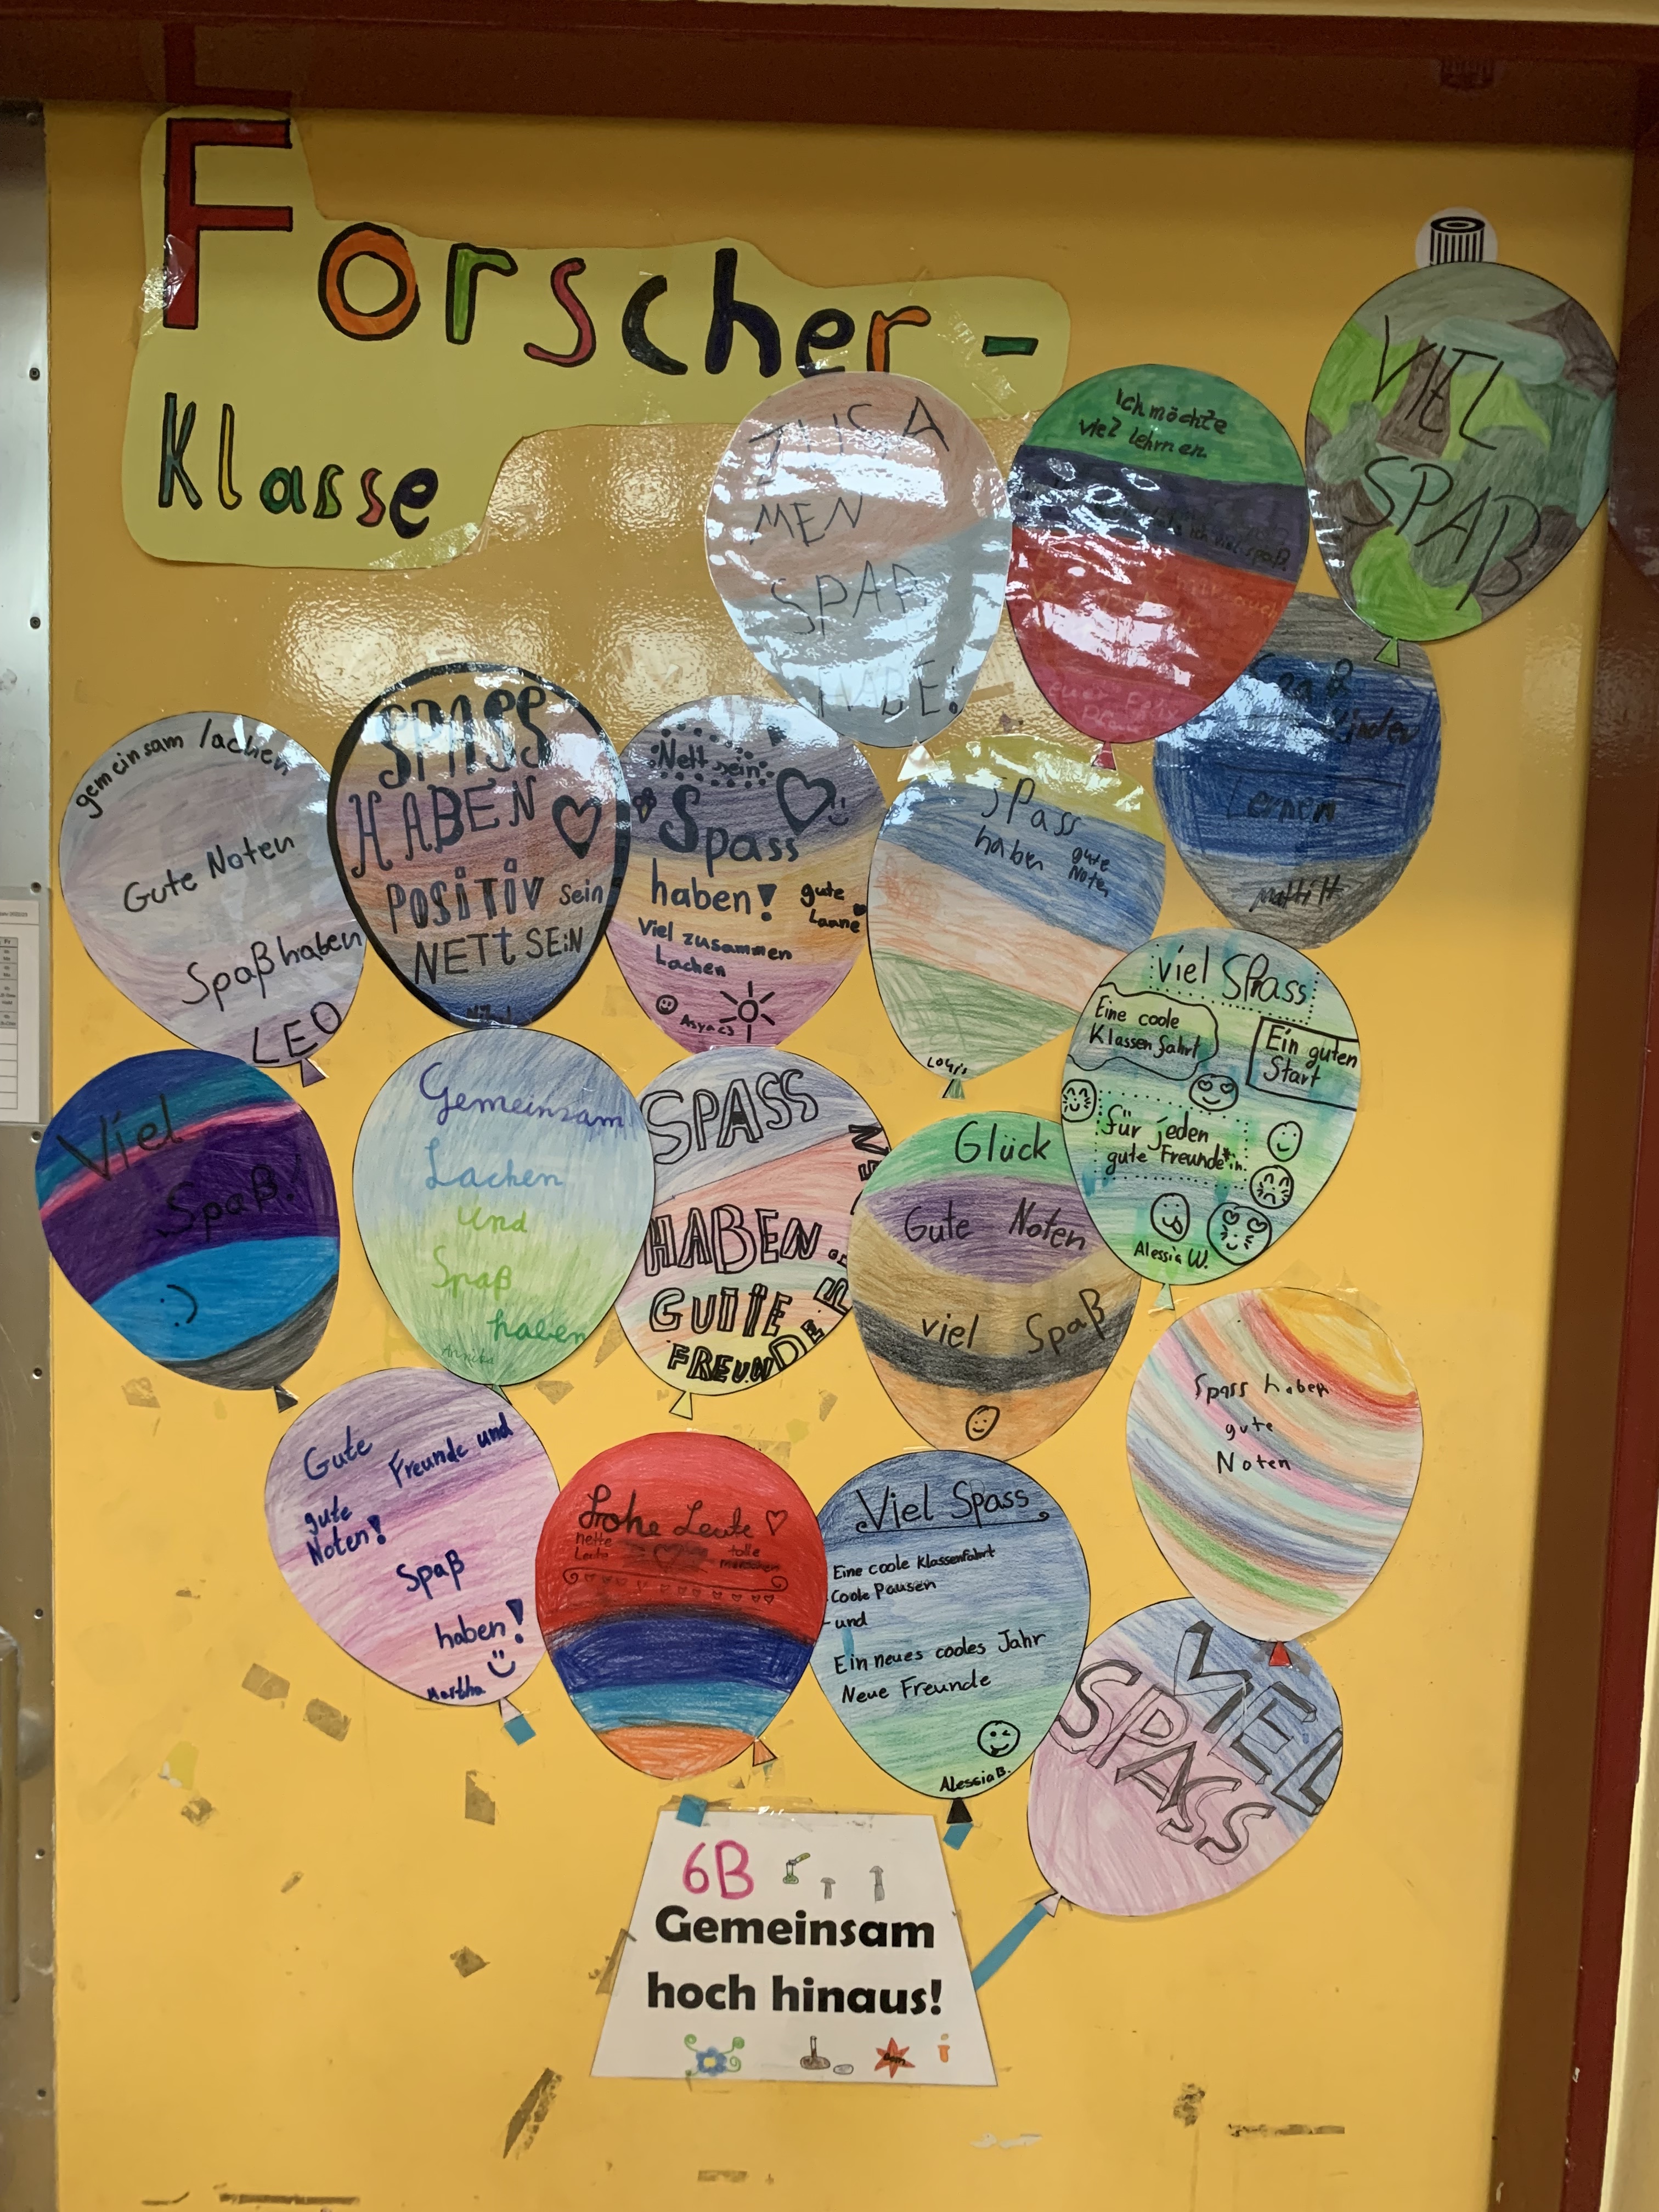 Forscher-
Klasse
VIEL
SPAß
Ich möchte
viel lehrnen
ich viel spaß.
MEN
SPAß
HABE!
Spaß
Lernen
gemeinsam lachen
Gute Noten
Spaß haben
LEO
SPASS
HABEN
POSITIV sein
NETT SEIN
Nett sein
Spass
haben!
gute
Laune
Viel zusammen
Lachen
SPass
haben
gute
Noten
viel SPass
Eine coole
Klassenfahrt
Ein guten
Start
für jeden
gute Freunde*in
Alessia W.
Viel
Spaß!
:)
Gemeinsam
Lachen
und
Spaß
haben
Annika
SPASS
HABEN
GUTE
FREUNDE
Glück
Gute Noten
viel Spaß
Spass haben
gute
Noten
Gute Freunde und
gute
Noten!
Spaß
haben!
Martha
Frohe Leute
nette
Leute
tolle
menschen
Viel Spass
Eine coole Klassenfahrt
Coole Pausen
und
Ein neues cooles Jahr
Neue Freunde
Alessia B.
VIEL
SPASS
6B
Gemeinsam
hoch hinaus!